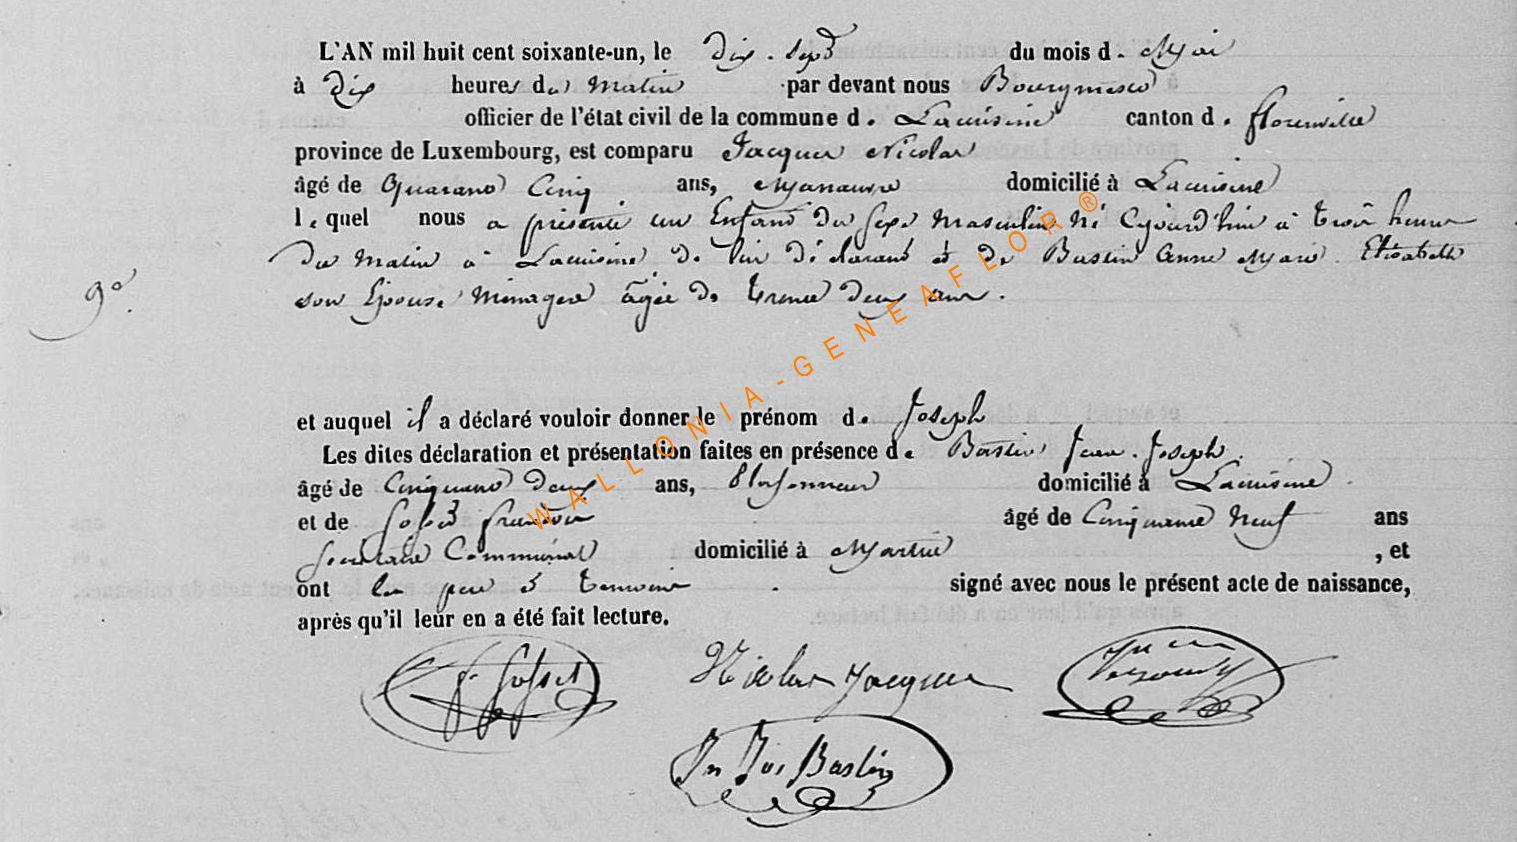 L'AN mil huit cent soixante-un, le Dix-Sept du mois de Mai
à Dix heures du Matin par devant nous Bourgmestre
officier de l'état civil de la commune de Lacuisine canton de florenville
province de Luxembourg, est comparu Jacques Nicolas
âgé de Quarante Cinq ans, Manœuvre domicilié à Lacuisine
lequel nous a présenté un Enfant du Sexe Masculin né Cejourd'hui à trois heures
du Matin à Lacuisine de lui déclarant et de Bastin Anne Marie Elisabeth
son Epouse Ménagère âgée de trente deux ans.
9°.
et auquel il a déclaré vouloir donner le prénom de Joseph
Les dites déclaration et présentation faites en présence de Bastin Jean-Joseph
âgé de Cinquante Deux ans, domicilié à Lacuisine
et de Gofset âgé de Cinquante Neuf ans
Secrétaire Communal domicilié à Martué , et
ont les père & témoins signé avec nous le présent acte de naissance,
après qu'il leur en a été fait lecture.
Gofset Nicolas Jacques
Jn Jos Bastin
WALLONIA-GENEAFLOR®